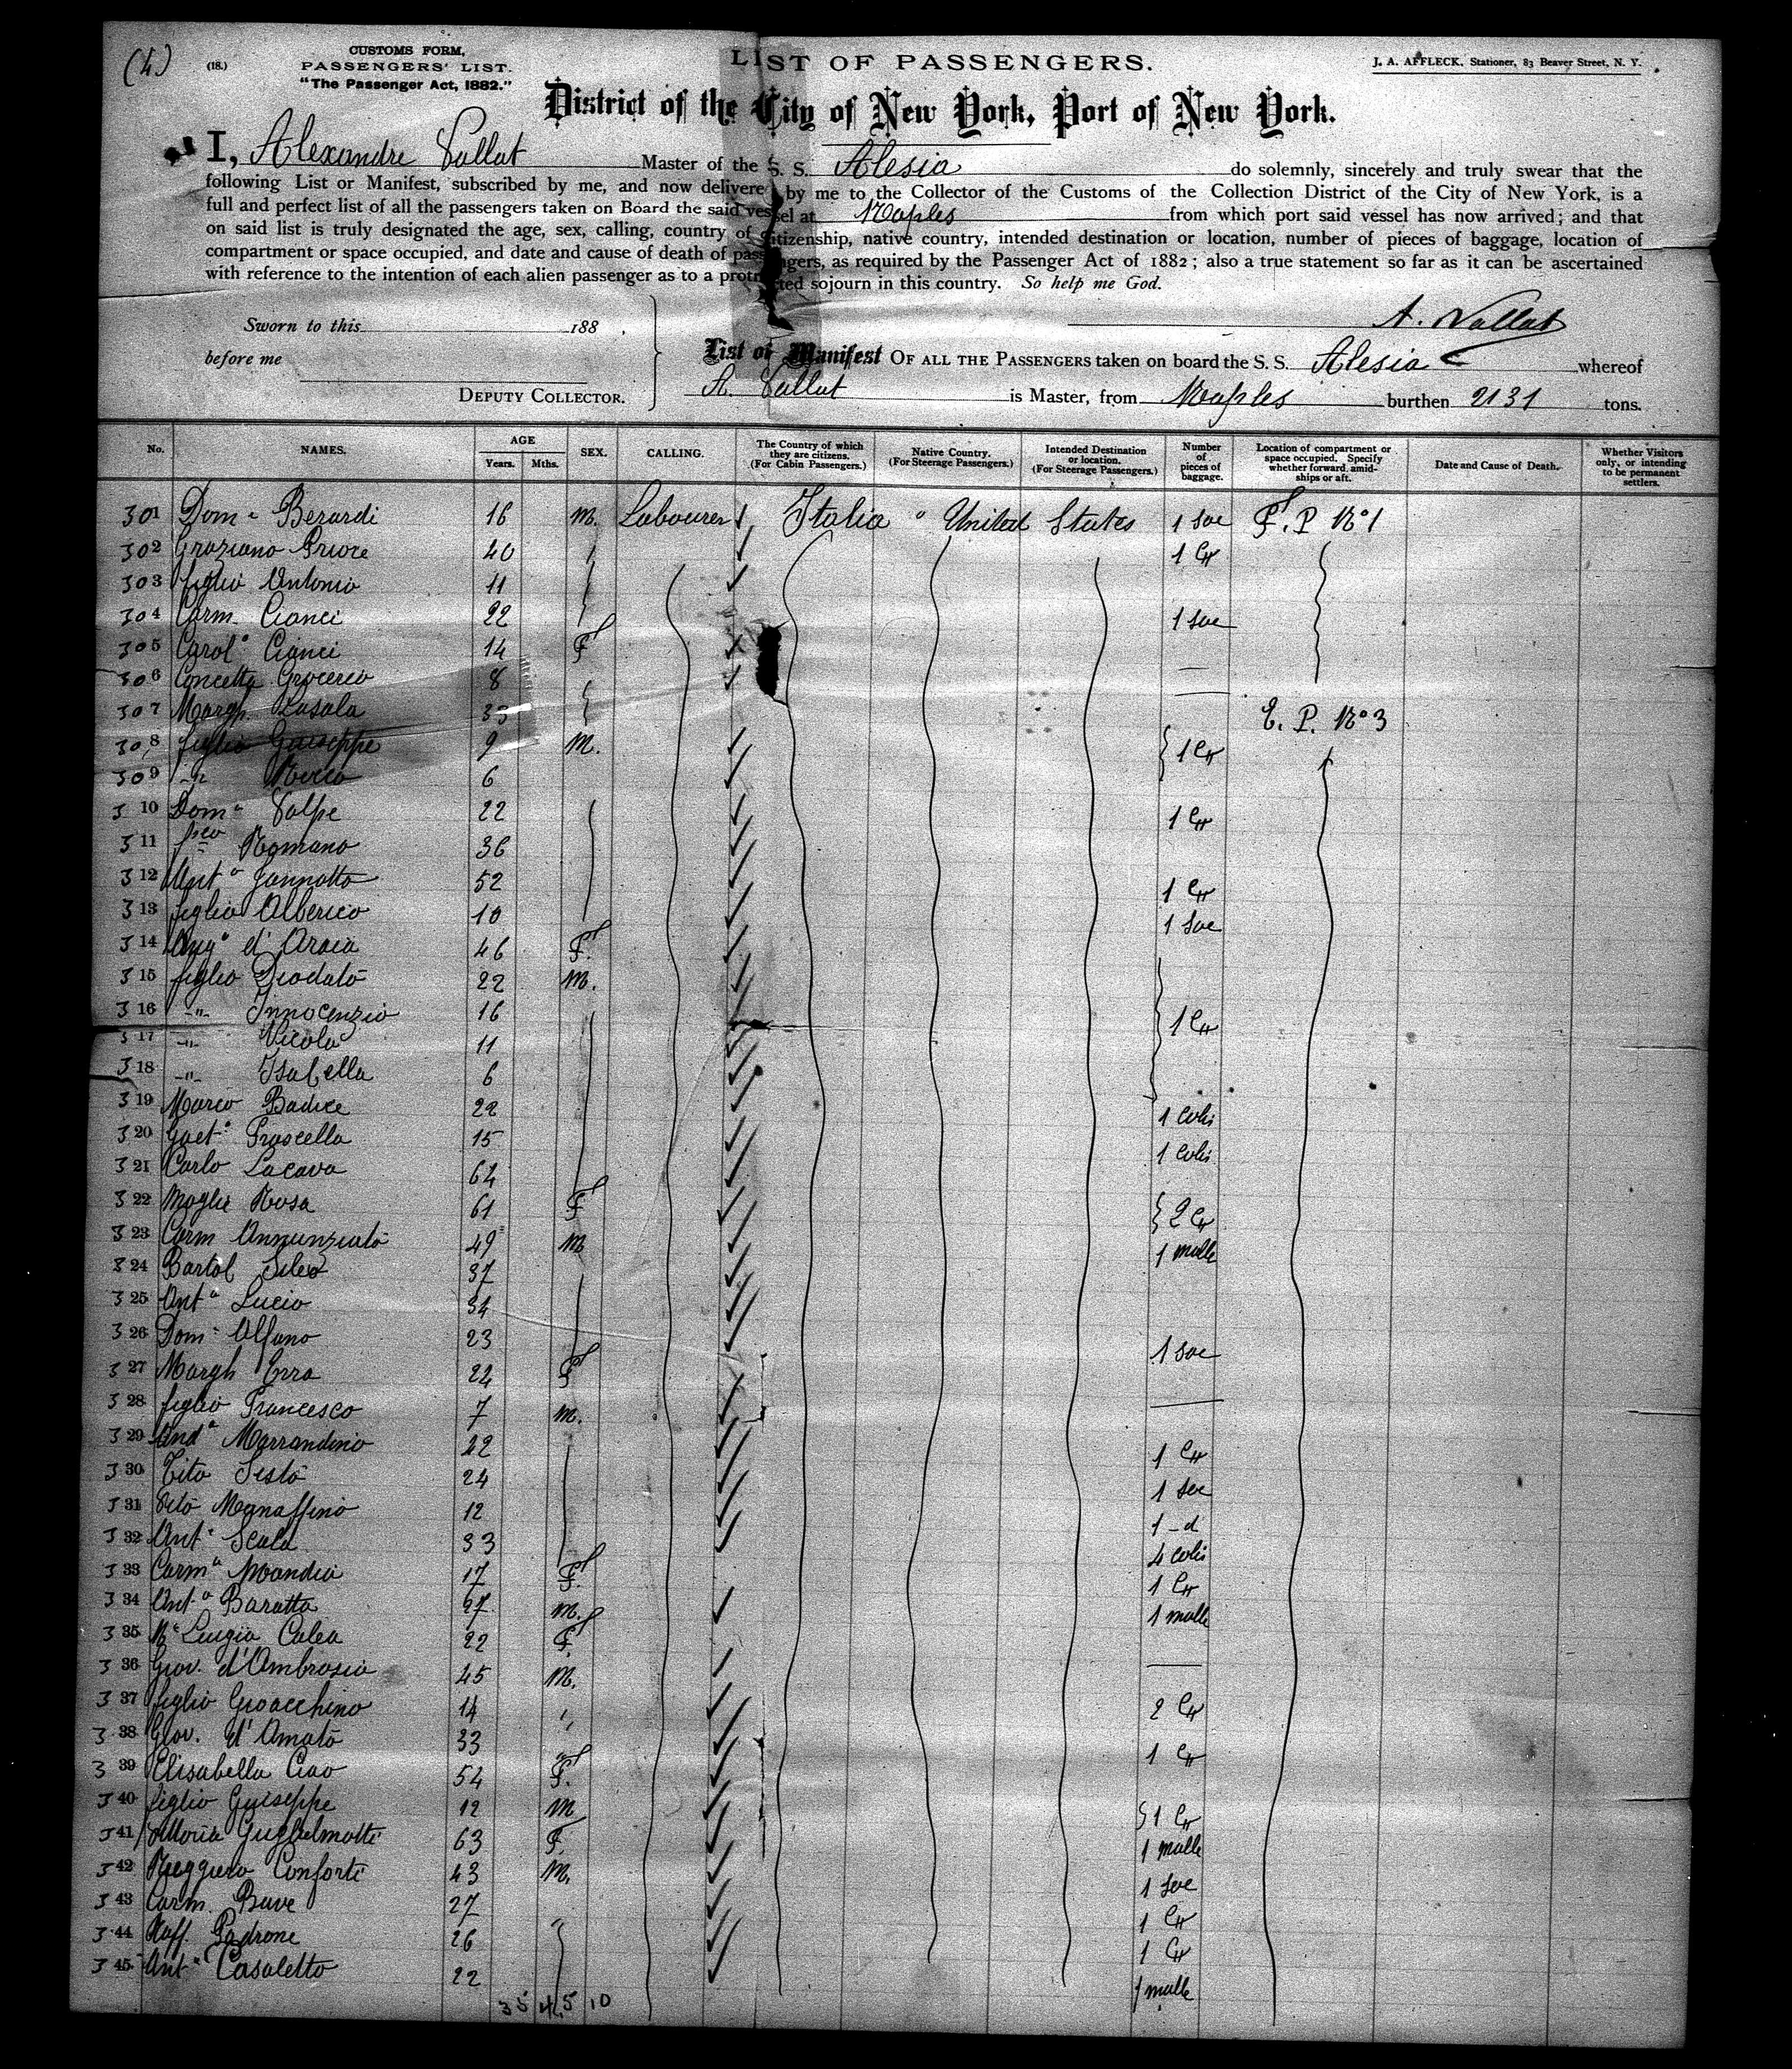 (4)
(18.)
CUSTOMS FORM,
PASSENGERS' LIST.
"The Passenger Act, 1882."
LIST OF PASSENGERS.
J. A. AFFLECK, Stationer, 83 Beaver Street, N. Y.
District of the City of New York, Port of New York.
I, Alexandre Vallat Master of the S. S. Alesia do solemnly, sincerely and truly swear that the
following List or Manifest, subscribed by me, and now delivered by me to the Collector of the Customs of the Collection District of the City of New York, is a
full and perfect list of all the passengers taken on Board the said vessel at Naples from which port said vessel has now arrived; and that
on said list is truly designated the age, sex, calling, country of citizenship, native country, intended destination or location, number of pieces of baggage, location of
compartment or space occupied, and date and cause of death of passengers, as required by the Passenger Act of 1882; also a true statement so far as it can be ascertained
with reference to the intention of each alien passenger as to a protracted sojourn in this country. So help me God.
A. Vallat
Sworn to this 188 .
before me
DEPUTY COLLECTOR.
List or Manifest OF ALL THE PASSENGERS taken on board the S. S. Alesia whereof
A. Vallat is Master, from Naples burthen 2131 tons.
No. NAMES. AGE Years. Mths. SEX. CALLING. The Country of which they are citizens. (For Cabin Passengers.) Native Country. (For Steerage Passengers.) Intended Destination or location. (For Steerage Passengers.) Number of pieces of baggage. Location of compartment or space occupied. Specify whether forward, amidships or aft. Date and Cause of Death. Whether Visitors only, or intending to be permanent settlers.
301 Dom° Berardi 16 M. Labourer Italia " United States 1 Sac F. P. N°1
302 Graziano Priore 40 1 Cr
303 figlio Antonio 11
304 Carm. Cianci 22 1 Sac
305 Carol° Cianci 14 F
306 Concetta 8
307 Margh. Lasala 35 E. P. N°3
308 figlio Guiseppe 9 M. 1 Cr
309 -"- Rocco 6
310 Dom° Volpe 22 1 Cr
311 fsco Romano 36
312 Ant° Jannotta 52 1 Cr
313 figlio Alberico 10 1 Sac
314 Ang° d' Araia 46 F.
315 figlio Diodato 22 M.
316 -"- Innocenzio 16 1 Cr
317 -"- Nicola 11
318 -"- Isabella 6
319 Marco Badice 22 1 Colis
320 Gaet° Frascella 15 1 Colis
321 Carlo Lacava 64
322 Moglie Rosa 61 F 2 Cr
323 Carm Annunziato 49 M 1 malle
324 Bartol Sileo 37
325 Ant° Lucio 34
326 Dom° Alfano 23 1 Sac
327 Margh Erra 24 F
328 figlio Francesco 7 M.
329 And° Marrandino 42 1 Cr
330 Tito Sisto 24 1 Sac
331 Vito Magnaffino 12 1 -d
332 Ant° Scala 33 4 Colis
333 Carm° Mandia 17 F. 1 Cr
334 Ant° Baratta 27 M. 1 malle
335 Mª Luigia Calea 22 F.
336 Giov. d'Ambrosio 45 M.
337 figlio Gioacchino 14 2 Cr
338 Giov. d'Amato 33 1 Cr
339 Elisabella Ciao 54 F.
340 figlio Guiseppe 12 M 1 Cr
341 Vittoria Guglielmotti 63 F. 1 malle
342 Ruggiero Conforti 43 M. 1 Sac
343 Carm. Bave 27 1 Cr
344 Raff. Padrone 26 1 Cr
345 Ant° Casaletto 22 1 malle
35 45 10